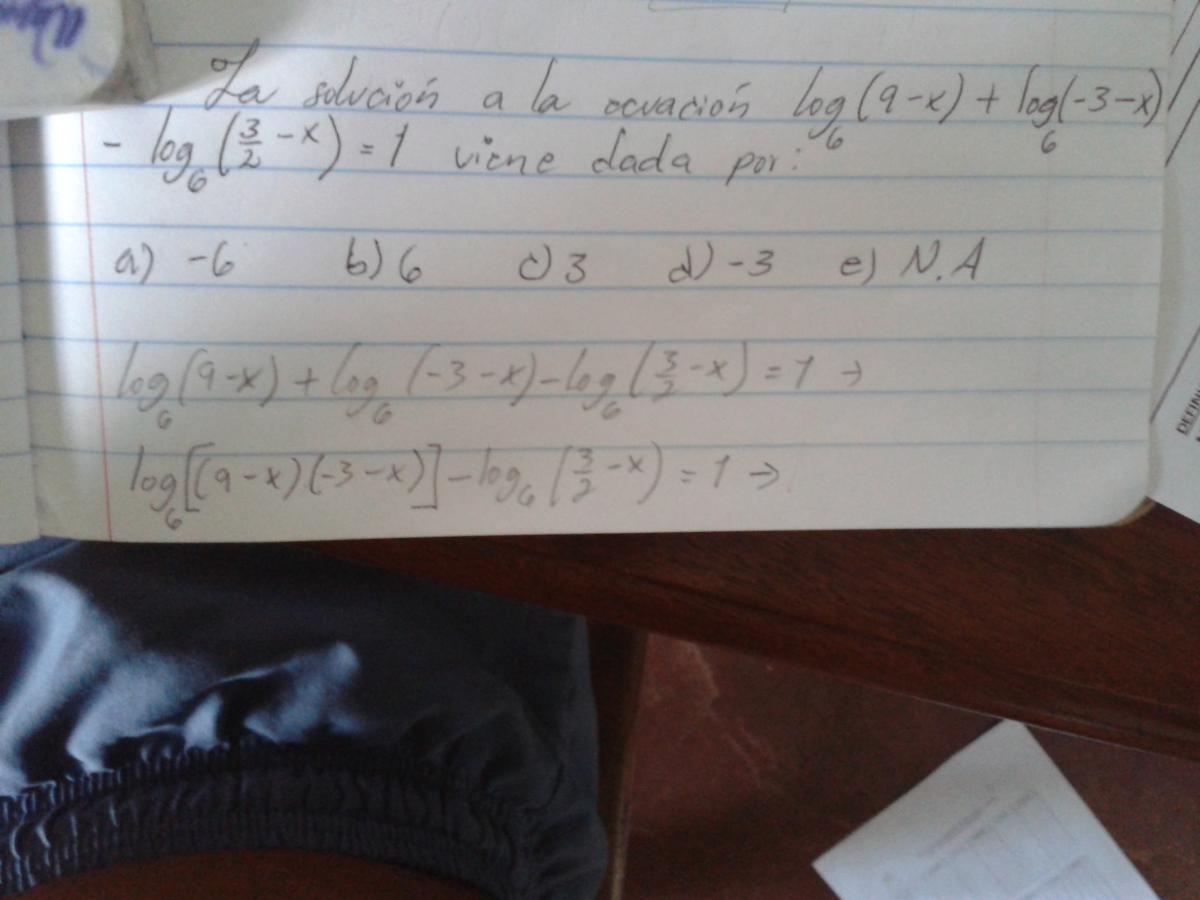 La solución a la ecuación log₆(9-x) + log₆(-3-x)
- log₆(3/2 - x) = 1 viene dada por:
a) -6 b) 6 c) 3 d) -3 e) N.A
log₆(9-x) + log₆(-3-x) - log₆(3/2 - x) = 1 →
log₆[(9-x)(-3-x)] - log₆(3/2 - x) = 1 →